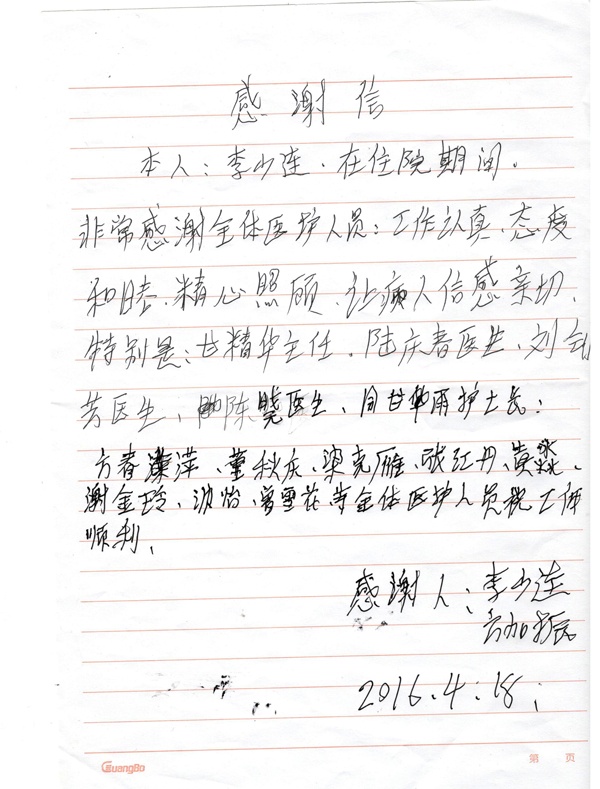 感谢信
本人：李少连．在住院期间．
非常感谢全体医护人员：工作认真、态度
和睦．精心照顾．让病人倍感亲切．
特别是：甘精华主任．陆庆春医生、刘
芳医生、陈晓医生、同甘 护士长：
方春 萍、董秋 、梁克雁、张红丹、黄
谢金玲、 怡、曾雪花等全体医护人员祝工作
顺利．
感谢人：李少连
方加振
2016.4.18；
GuangBo
第 页